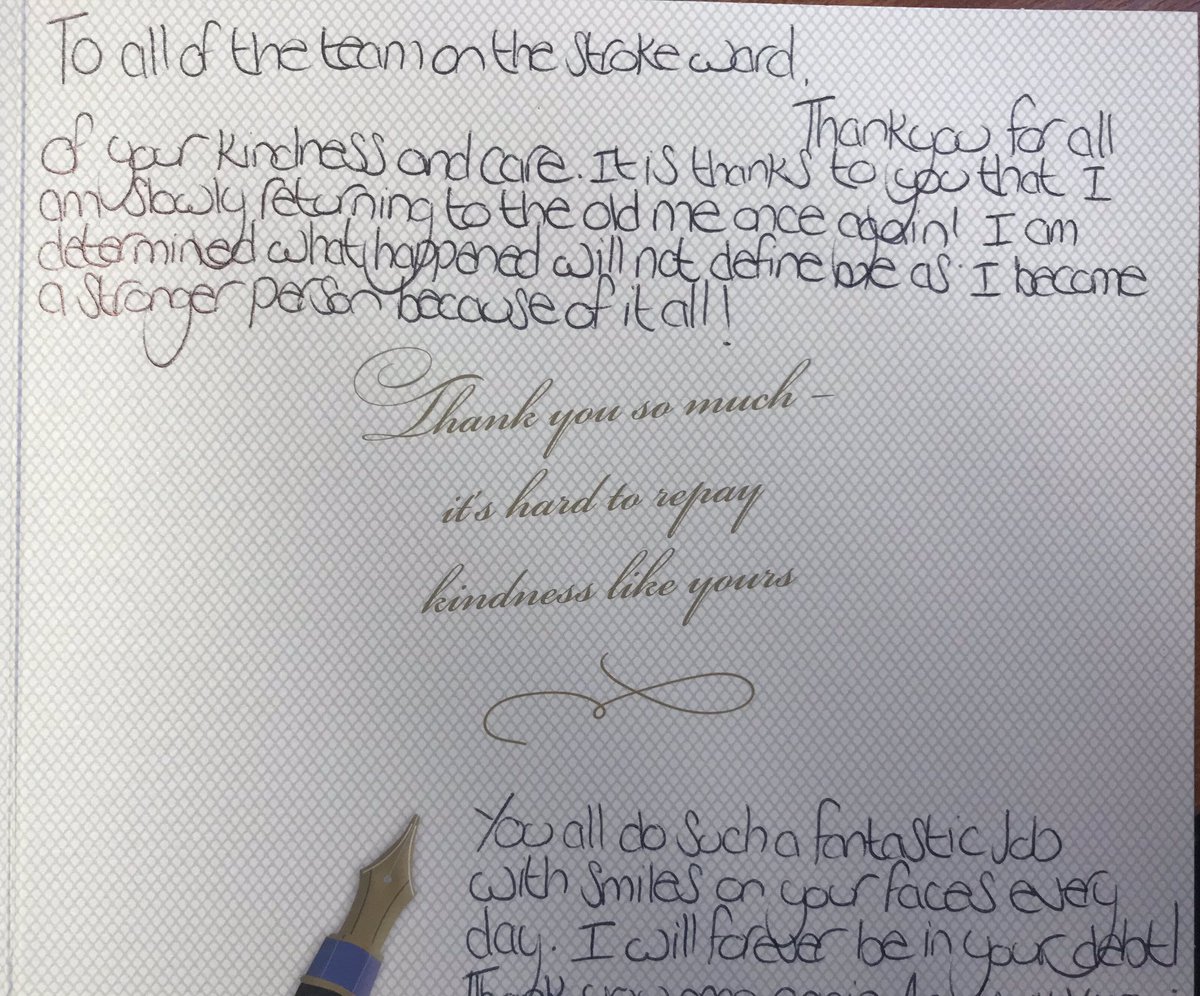 To all of the team on the stroke ward,
Thank you for all
of your kindness and care. It is thanks to you that I
am slowly returning to the old me once again! I am
determined what happened will not define me as I become
a stronger person because of it all!
Thank you so much -
it's hard to repay
kindness like yours
You all do such a fantastic job
with smiles on your faces every
day. I will forever be in your debt!
Thank you once again